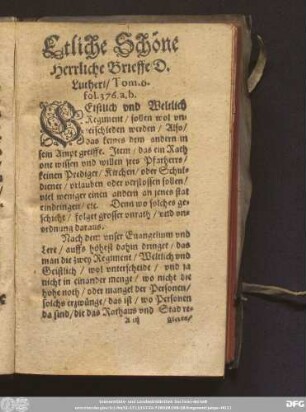 Etliche Schöne
Herrliche Brieffe D.
Lutheri / Tom.
fol. 376. a. b.
GEistlich vnd Weltlich
Regiment / sollen wol vn-
terschieden werden / Also /
das keines dem andern in
sein Ampt greiffe. Item / das ein Rath
one wissen vnd willen jres Pfarherrs /
keinen Prediger / Kirchen / oder Schul-
diener / vrlauben oder verstossen sollen /
viel weniger einen andern an jenes stat
eindringen / etc. Denn wo solches ge-
schicht / folget grosser vnrath / vnd vn-
ordnung daraus.
Nach dem vnser Euangelium vnd
Lere / auffs höhest dahin dringet / das
man die zwey Regiment / Weltlich vnd
Geistlich / wol vnterscheide / vnd ja
nicht in einander menge / wo nicht die
hohe noth / oder mangel der Personen /
solchs erzwünge / das ist / wo Personen
da sind / die das Rathaus vnd Stad re-
A ij
DFG